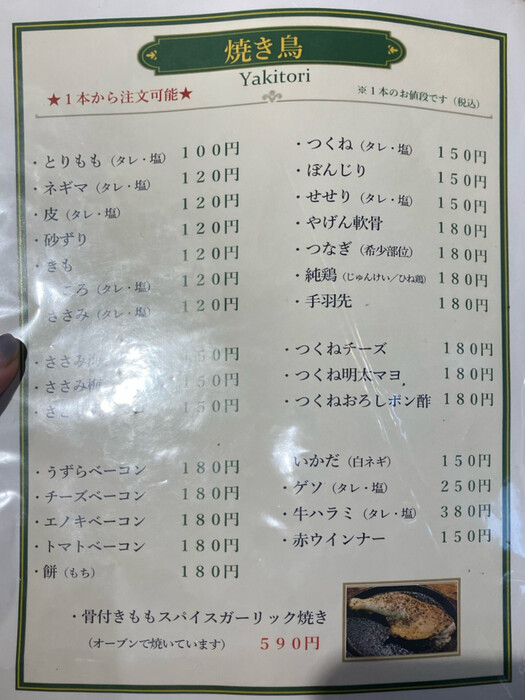 焼き鳥
Yakitori
★１本から注文可能★
※１本のお値段です（税込）
・とりもも（タレ・塩） １００円
・ネギマ（タレ・塩） １２０円
・皮（タレ・塩） １２０円
・砂ずり １２０円
・きも １２０円
ころ（タレ・塩） １２０円
ささみ（タレ・塩） １２０円
・ささみ ５０円
・ささみ梅 １５０円
・さ １５０円
・うずらベーコン １８０円
・チーズベーコン １８０円
・エノキベーコン １８０円
・トマトベーコン １８０円
・餅（もち） １８０円
・つくね（タレ・塩） １５０円
・ぼんじり １５０円
・せせり（タレ・塩） １５０円
・やげん軟骨 １８０円
・つなぎ（希少部位） １８０円
・純鶏（じゅんけい／ひね鶏） １８０円
・手羽先 １８０円
・つくねチーズ １８０円
・つくね明太マヨ １８０円
・つくねおろしポン酢 １８０円
いかだ（白ネギ） １５０円
・ゲソ（タレ・塩） ２５０円
・牛ハラミ（タレ・塩） ３８０円
・赤ウインナー １５０円
・骨付きももスパイスガーリック焼き
（オーブンで焼いています） ５９０円